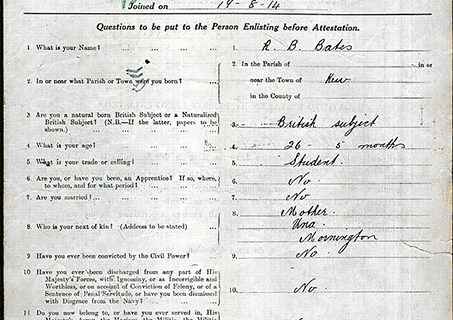 Joined on 19-8-14
Questions to be put to the Person Enlisting before Attestation.
1. What is your Name? 1. R. B. Bates
2. In or near what Parish or Town were you born? 2. In the Parish of in or
near the Town of Kew
in the County of
3. Are you a natural born British Subject or a Naturalized
British Subject? (N.B.—If the latter, papers to be
shown.) 3. British subject
4. What is your age? 4. 26 - 5 months
5. What is your trade or calling? 5. Student.
6. Are you, or have you been, an Apprentice? If so, where,
to whom, and for what period? 6. No.
7. Are you married? 7. No
8. Who is your next of kin? (Address to be stated) 8. Mother
Una
Mornington
9. Have you ever been convicted by the Civil Power? 9. No.
10. Have you ever been discharged from any part of His
Majesty's Forces, with Ignominy, or as Incorrigible and
Worthless, or on account of Conviction of Felony, or of a
Sentence of Penal Servitude, or have you been dismissed
with Disgrace from the Navy? 10. No.
11. Do you now belong to, or have you ever served in, His